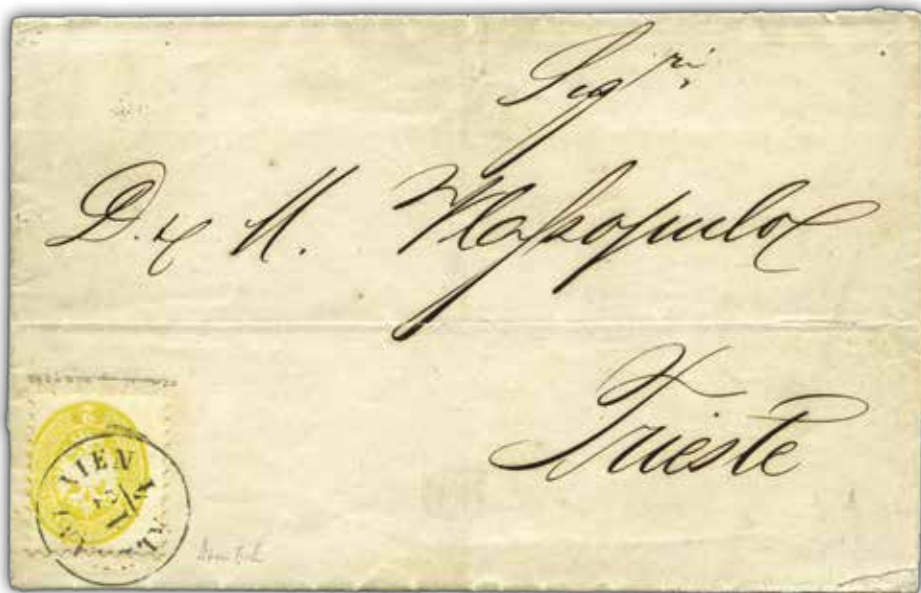 Sigri
D. & M. Vlassopulo
Trieste
WIEN